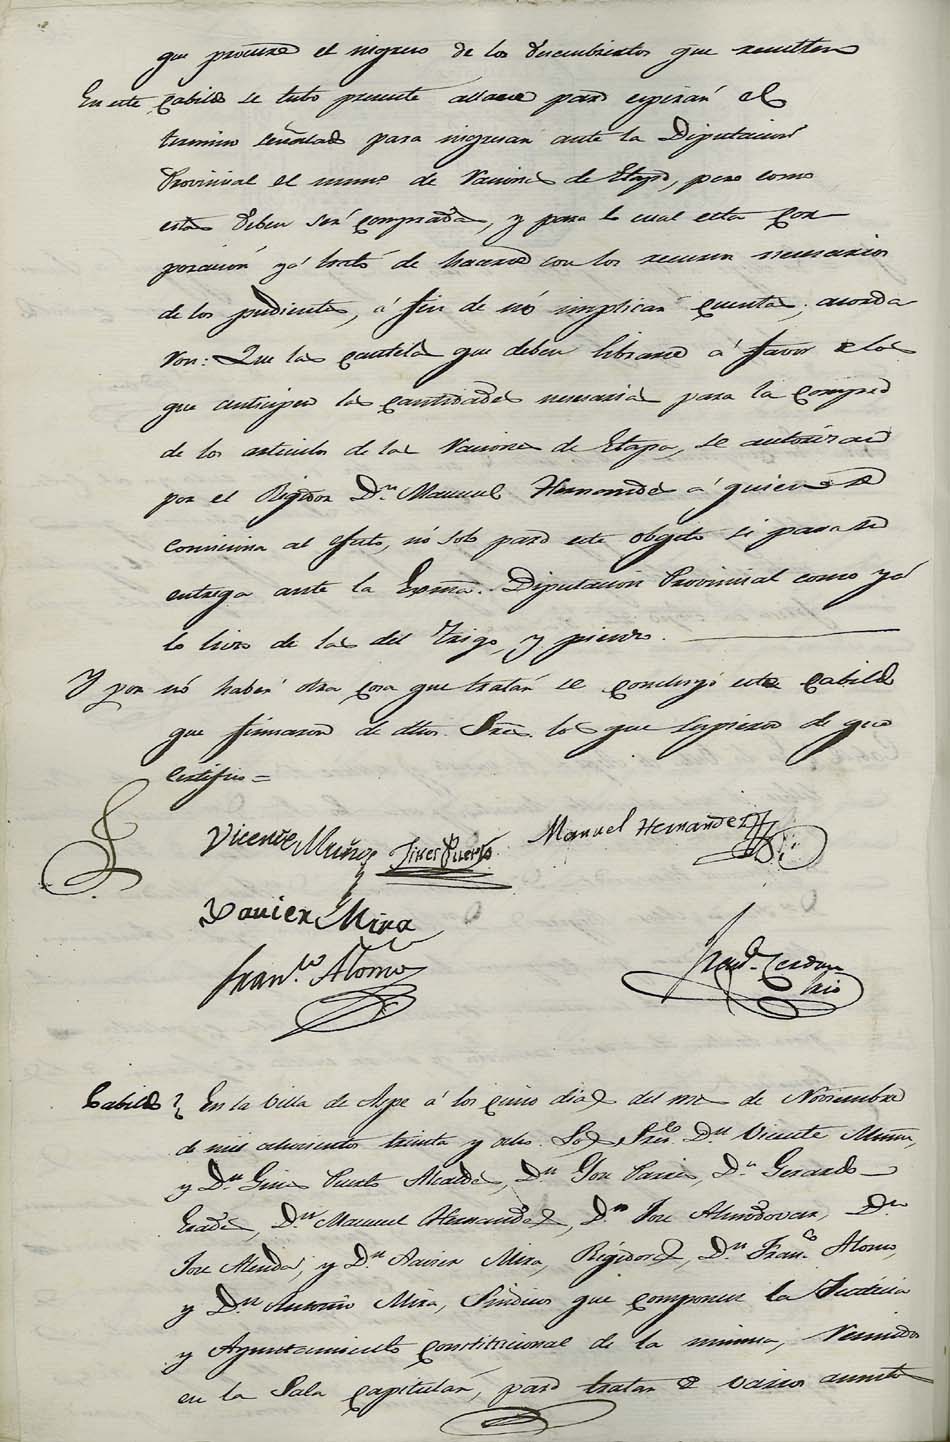 que procure el ingreso de los descubiertos que resulten
En este Cabildo se tubo presente para espirar el
termino señalado para ingresar ante la Diputacion
Provincial el de Raciones de Etapa, pero como
estas deben ser compradas, y para lo cual esta Cor-
poracion yá trató de hacerse con los recursos necesarios
de los pudientes, á fin de nó implicar cuentas; acorda
ron: Que las cautelas que deben librarse á favor de los
que anticipen las cantidades necesarias para la compra
de los articulos de las Raciones de Etapa, se autorizen
por el Regidor Dn. Manuel Hernandez á quien se
comisiona al efecto, nó solo para este obgeto si para su
entrega ante la Exma. Diputacion Provincial como yá
lo hizo de las del Trigo, y pienso.
Y por nó haber otra cosa que tratar se concluyó este Cabildo
que firmaron de dhos. Sres. los que supieron de que
Certifico =
Vicente Muñoz Gines Puerto Manuel Hernandez
Xavier Mira
Franco. Alonso
Cabildo En la Villa de Aspe á los cinco dias del mes de Noviembre
de mil ochocientos treinta y ocho. Los Sres. Dn. Vicente Muñoz,
y Dn. Gines Puerto Alcaldes, Dn. Jose Dn. Gerardo
Dn. Manuel Hernandez, Dn. Jose Almodovar, Dn.
Jose y Dn. Xavier Mira, Regidores, Dn. Franco. Alonso,
y Dn. Antonio Mira, Sindicos que componen la Justicia
y Ayuntamiento constitucional de la misma, Reunidos
en la Sala Capitular, para tratar de varios asuntos